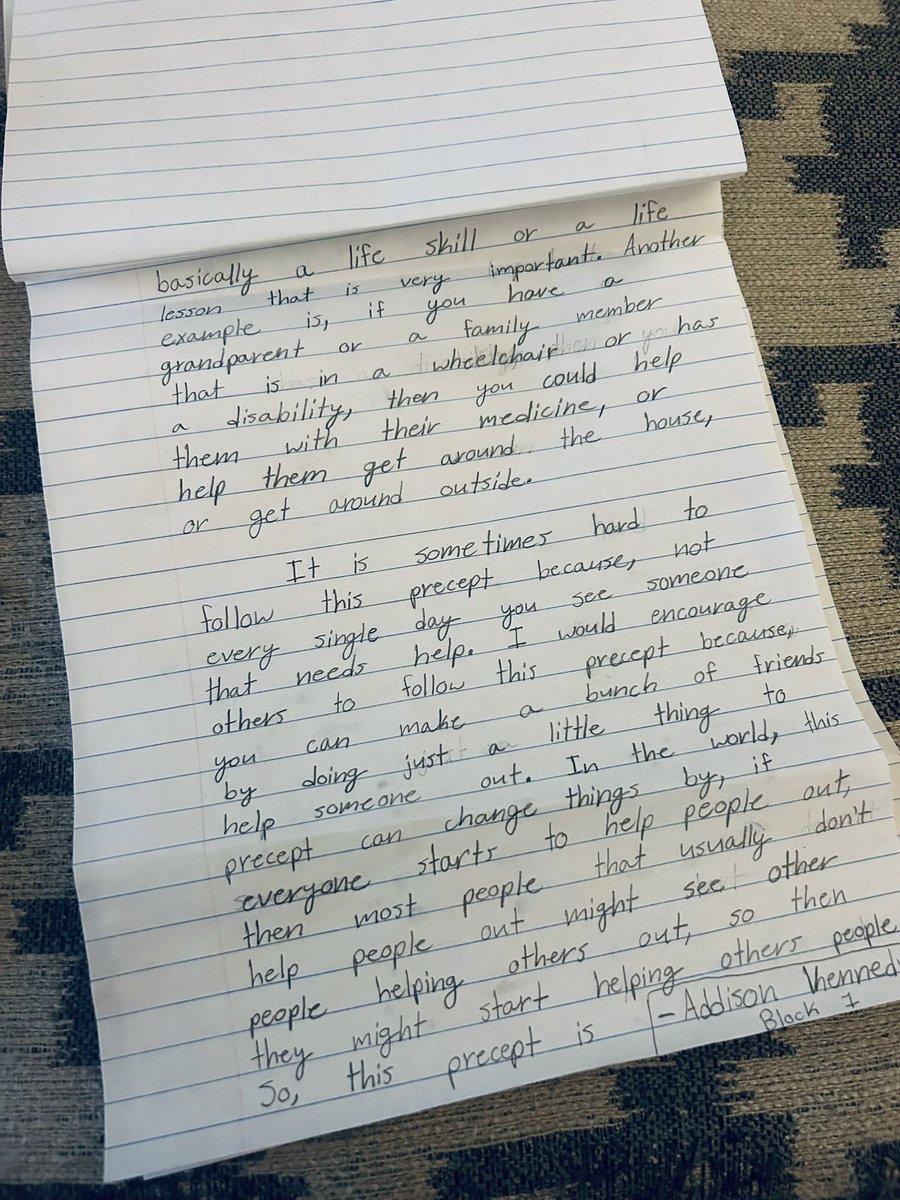 basically a life skill or a life
lesson that is very important. Another
example is, if you have a
grandparent or a family member
that is in a wheelchair or has
a disability, then you could help
them with their medicine, or
help them get around the house,
or get around outside.
It is sometimes hard to
follow this precept because, not
every single day you see someone
that needs help. I would encourage
others to follow this precept because,
you can make a bunch of friends
by doing just a little thing to
help someone out. In the world, this
precept can change things by, if
everyone starts to help people out,
then most people that usually don't
help people out might see other
people helping others out, so then
they might start helping others people
So, this precept is
-Addison Khennedy
Block 7